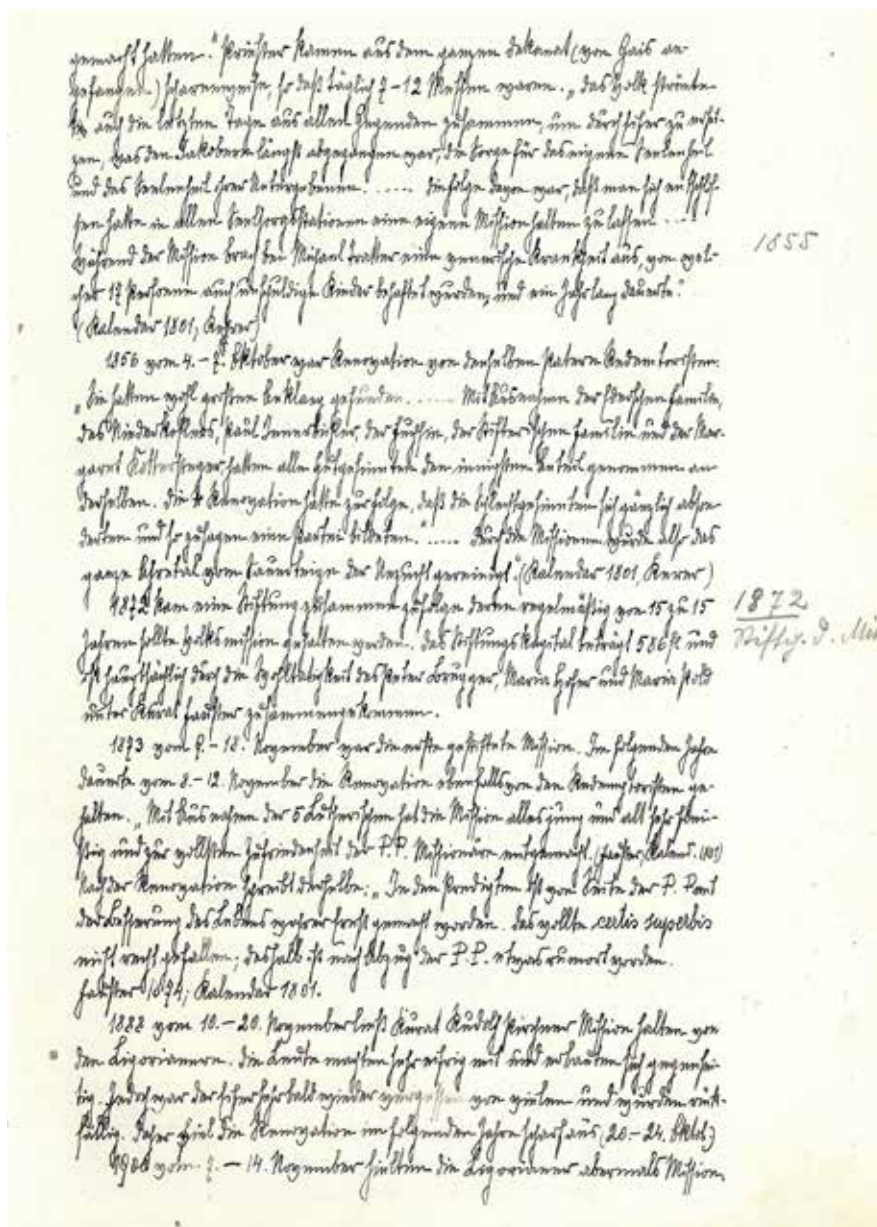 gemacht hatten." Priester kamen aus dem ganzen Dekanat (von Gais an-
gefangen) scharenweise, so daß täglich 7-12 Messen waren. „Das Volk strömte
auch die letzten Tage aus allen Gegenden zusammen, um durch Eifer zu erset-
zen, was den Jakobern längst abgegangen war, die Sorge für das eigene Seelenheil
und das Seelenheil ihrer Untergebenen. ..... Die Folge davon war, daß man sich entschlos-
sen hatte in allen Seelsorgsstationen eine eigene Mission halten zu lassen ....
Während der Mission brach bei Michael Tratter eine venerische Krankheit aus, von wel-
cher 17 Personen auch unschuldige Kinder behaftet wurden, und ein Jahr lang dauerte."
(Kalender 1801, Kehrer)
1855
1856 vom 4.-7. Oktober war Renovation von denselben Patern Redemtoristen.
„Sie hatten wohl großen Anklang gefunden. ..... Mit Ausnahme der Familie,
des Niederkoflers, Paul Innerbichler, der Fuchsin, der Familie und der Mar-
garet Kottersteger hatten alle Gutgesinnten den innigsten Anteil genommen an
derselben. Die Renovation hatte zur Folge, daß die Schlechtgesinnten sich gänzlich abson-
derten und so zusagen eine Partei bildeten." ..... Durch die Missionen wurde also das
ganze Ahretal vom Sauerteige der Unzucht gereinigt." (Kalender 1801, Kerer)
1872 kam eine Stiftung zusammen zufolge deren regelmäßig von 15 zu 15
Jahren sollte Volksmission gehalten werden. Das Stiftungskapital beträgt 586 fl und
ist hauptsächlich durch die Wohltätigkeit des Peter Brugger, Maria Hofer und Maria Pold
unter Kurat Fauster zusammengekommen.
1872
Stiftg. d. Mis
1873 vom 9.-18. November war die erste gestiftete Mission. Im folgenden Jahre
dauerte vom 8.-12. November die Renovation ebenfalls von den Redemptoristen ge-
halten. „Mit Ausnahme der 5 Lutherischen hat die Mission alles jung und alt sehr flei-
ßig und zur vollsten Zufriedenheit der P.P. Missionäre mitgemacht. (Fauster, Kalend. 1801)
Nach der Renovation schreibt derselbe: „In den Predigten ist von Seite der P. P.
der Besserung des Lebens wahrer Ernst gemacht worden. Das wollte certis superbis
nicht recht gefallen; deshalb ist nach Abzug der P.P. etwas rumort worden.
Fauster 1874; Kalender 1801.
1888 vom 10.-20. November ließ Kurat Rudolf Kirchner Mission halten von
den Ligorianern. Die Leute machten sehr eifrig mit und erbauten sich gegensei-
tig. Jedoch war der Eifer sehr bald wieder vergessen von vielen und wurden rück-
fällig. Daher fiel die Renovation im folgenden Jahre scharf aus (20.-24. Oktob.)
1900 vom 7.-14. November hielten die Ligorianer abermals Mission,